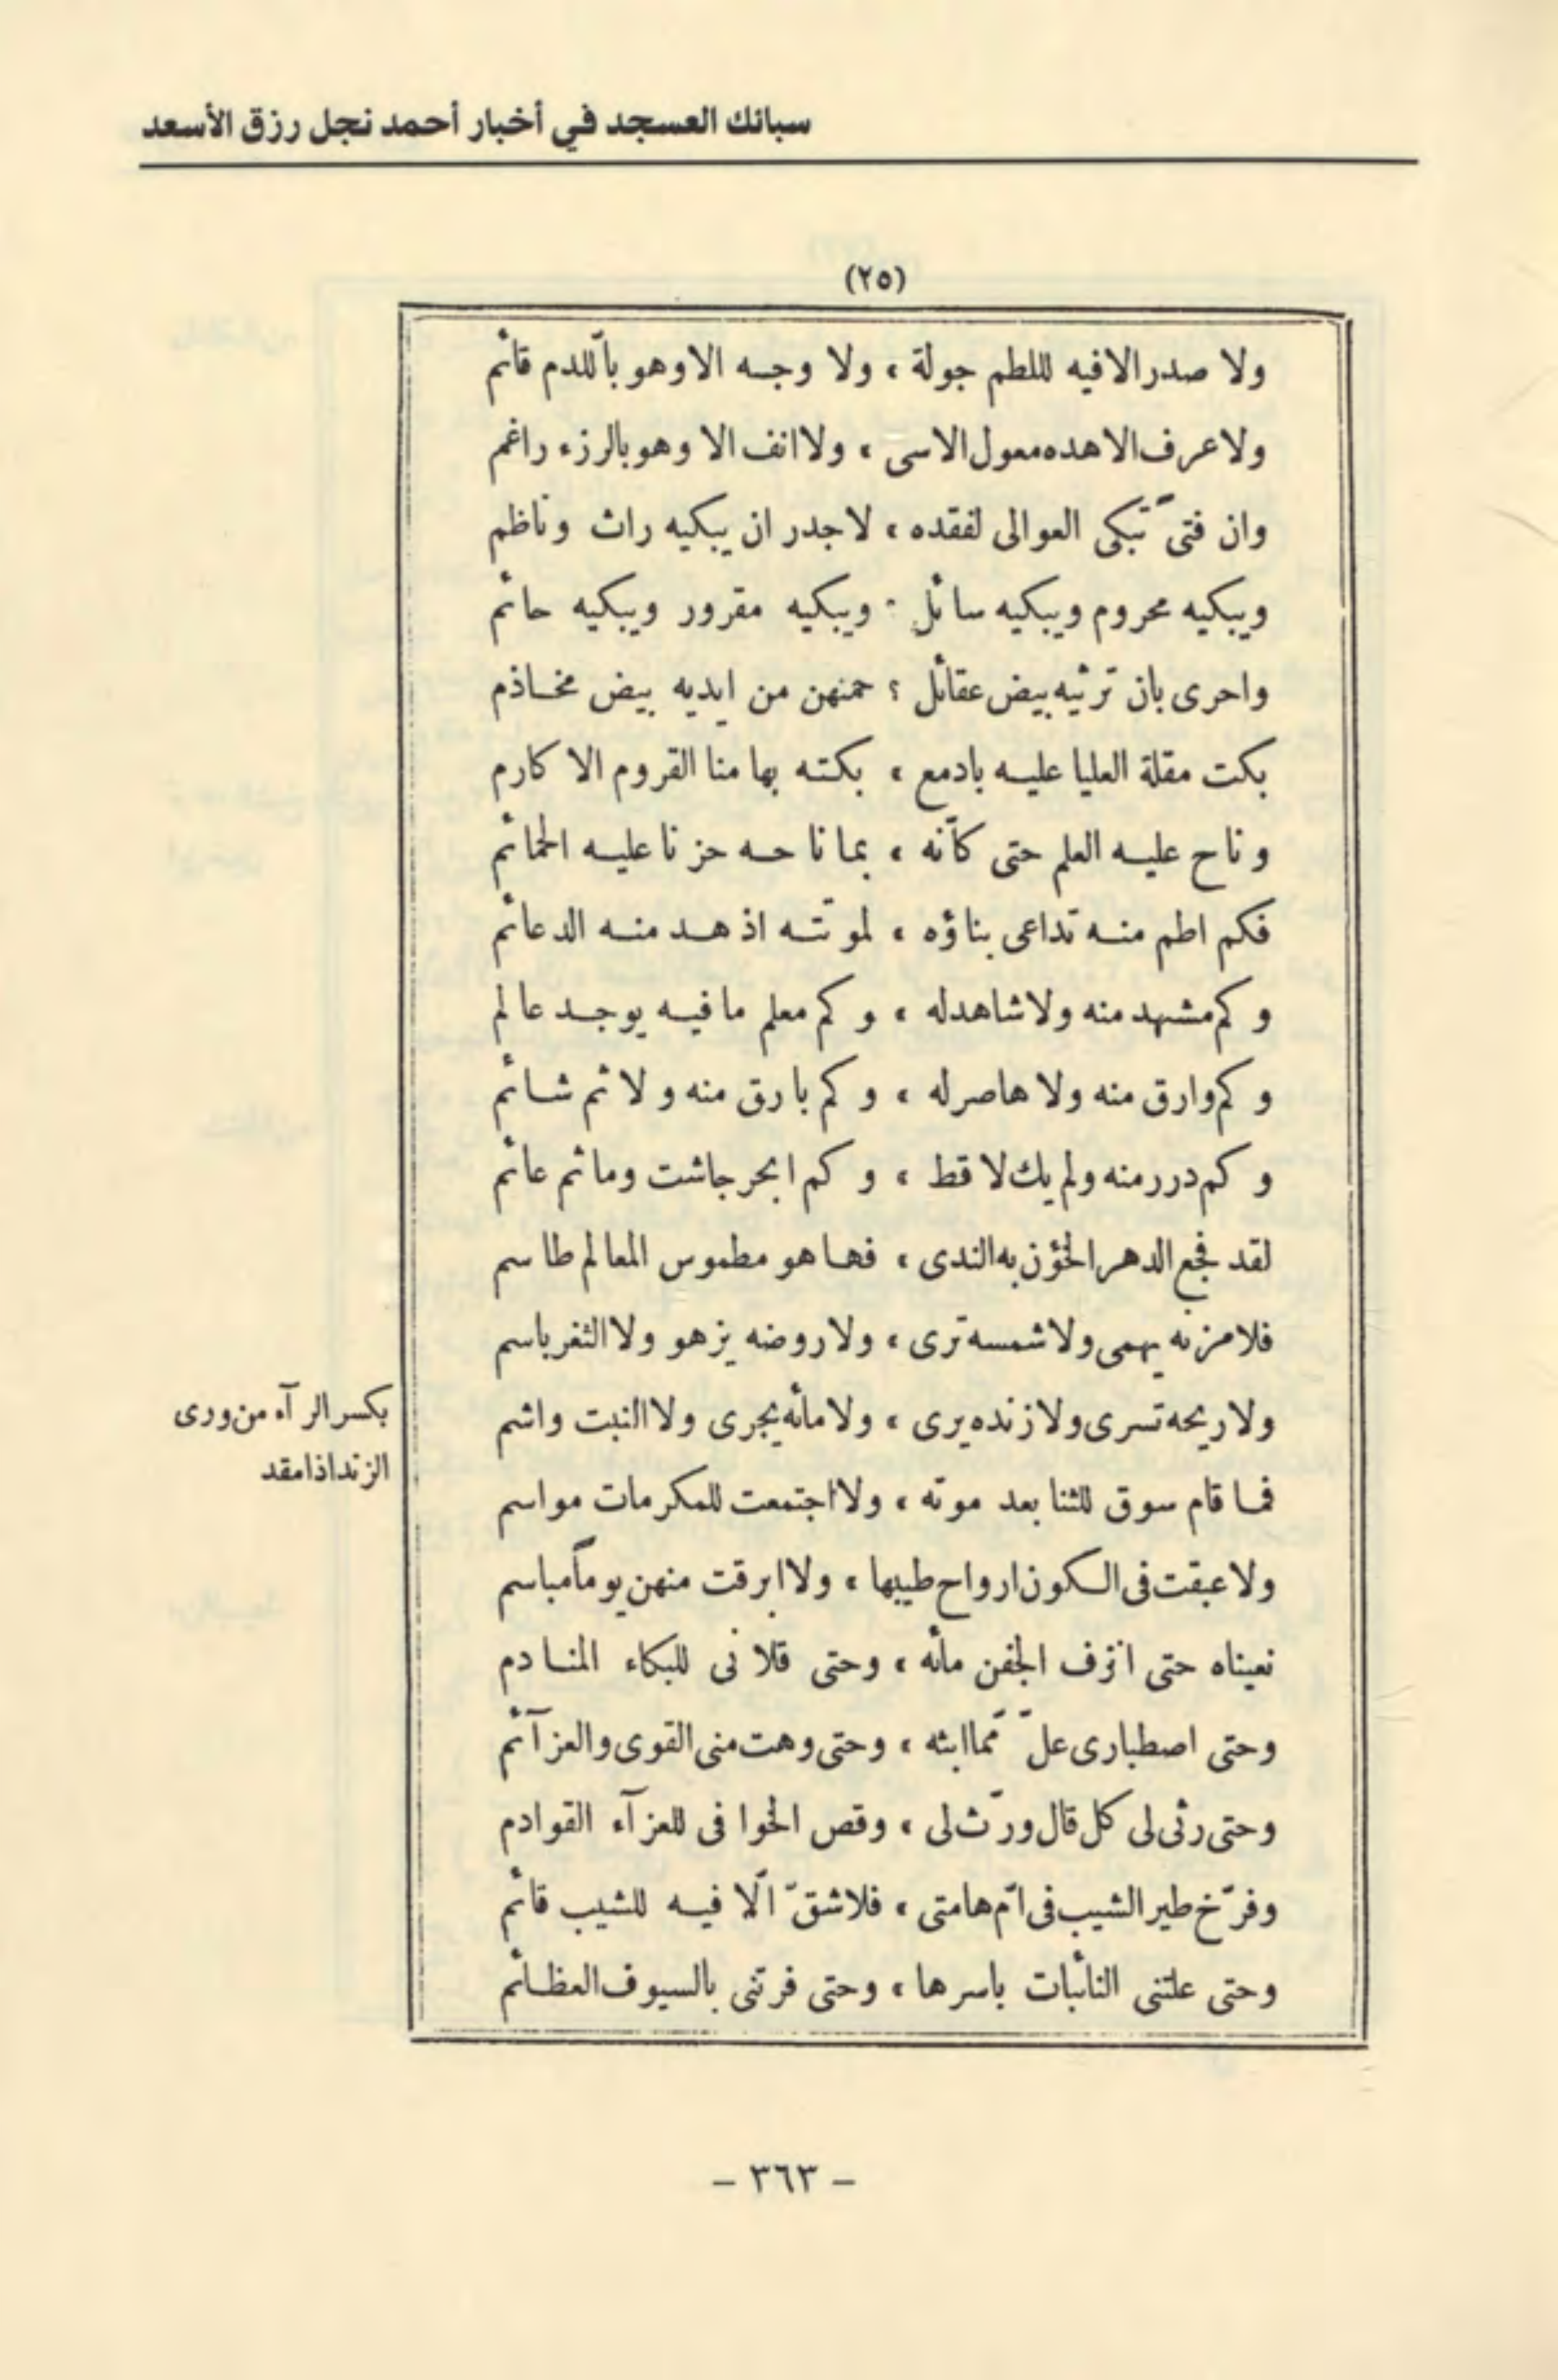 سبائك العسجد في أخبار أحمد نجل رزق الأسعد
(٢٥)
ولا صدر الا فيه لللطم جولة ، ولا وجه الا وهو باللدم قائم
ولا عرف الا هده معول الاسى ، ولا انف الا وهو بالرزء راغم
وان فتى تبكى العوالى لفقده ، لاجدر ان يبكيه راث وناظم
ويبكيه محروم ويبكيه سائل ، ويبكيه مقرور ويبكيه حائم
واحرى بان ترثيه بيض عقائل ؛ حمنهن من ايديه بيض مخاذم
بكت مقلة العليا عليه بادمع ، بكته بها منا القروم الاكارم
وناح عليه العلم حتى كأنه ، بما ناحه حزنا عليه الحمائم
فكم اطم منه تداعى بناؤه ، لموتته اذ هد منه الدعائم
وكم مشهد منه ولا شاهد له ، وكم معلم ما فيه يوجد عالم
وكم وارق منه ولا هاصر له ، وكم بارق منه ولا ثم شائم
وكم درر منه ولم يك لاقط ، وكم ابحر جاشت وما ثم عائم
لقد فجع الدهر الخؤن به الندى ، فها هو مطموس المعالم طاسم
فلا مزنه يهمى ولا شمسه ترى ، ولا روضه يزهو ولا الثغر باسم
ولا ريحه تسرى ولا زنده يرى ، ولا مائه يجرى ولا النبت واشم
بكسر الرآء من ورى
الزند اذا مقد
فما قام سوق للثنا بعد موته ، ولا اجتمعت للمكرمات مواسم
ولا عبقت فى الكون ارواح طيبها ، ولا ابرقت منهن يوماً مباسم
نعيناه حتى انزف الجفن مائه ، وحتى قلانى للبكاء المنادم
وحتى اصطبارى علّ ممّا ابثه ، وحتى وهت منى القوى والعزآئم
وحتى رثى لى كل قال ورّث لى ، وقص الخوافى للعزآء القوادم
وفرّخ طير الشيب فى امّ هامتى ، فلا شقّ الّا فيه للشيب قائم
وحتى علتنى النائبات باسرها ، وحتى فرتنى بالسيوف العظائم
- ٣٦٣ -